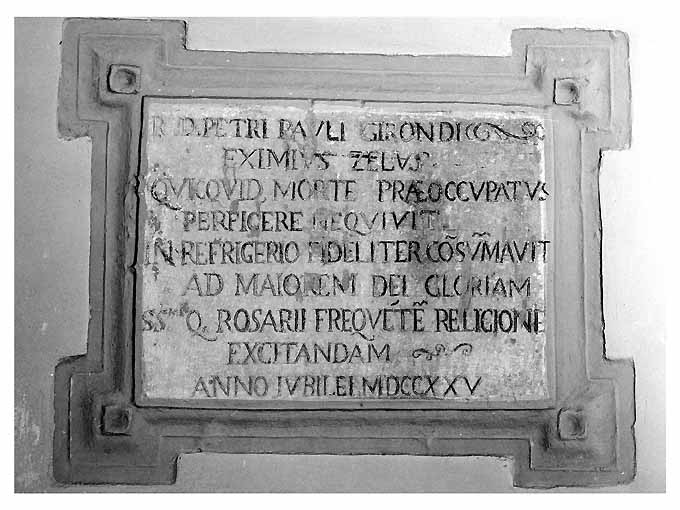 R.D. PETRI PAVLI GIRONDICO
EXIMIVS ZELVS
QVICQVID MORTE PRÆOCCVPATVS
PERFICERE NEQVIVIT
IN REFRIGERIO FIDELITER CÕSVM̃AVIT
AD MAIOREM DEI GLORIAM
SS.mi Q. ROSARII FREQVẼTẼ RELIGIONE
EXCITANDAM
ANNO IVBILEI MDCCXXV